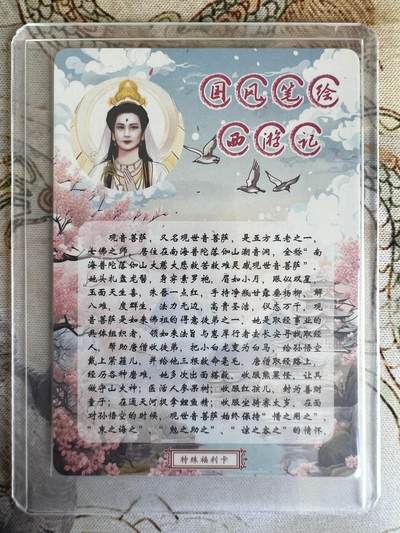 国风笔绘
西游记
观音菩萨，又名观世音菩萨，是五方五老之一、
七佛之师，居住在南海普陀落伽山潮音洞，全称“南
海普陀落伽山大慈大悲救苦救难灵感观世音菩萨”。
她头扎盘龙髻，身穿素罗袍，眉如小月，眼似双星，
玉面天生喜，朱唇一点红，手持净瓶甘露垂杨柳，解
八难，度群生，法力无边，高贵圣洁，仪态万千。观
世音菩萨是如来佛祖的得意徒弟之一，她是取经事业的
具体组织者，领如来法旨与惠岸行者去长安寻找取经
人，帮助唐僧收徒弟，把小白龙变为白马，给孙悟空
戴上紧箍儿，并给他三根救命毫毛，唐僧取经路上，
经历各种磨难，她多次出面搭救，收服熊罴怪，让其
做守山大神；医活人参果树；收服红孩儿，封为善财
童子；在通天河捉拿鲤鱼精；收服坐骑赛太岁，在面
对孙悟空的时候，观世音菩萨始终保持“惜之用之”、
“束之诲之”、“勉之助之”、“谅之容之”的情怀
特殊福利卡